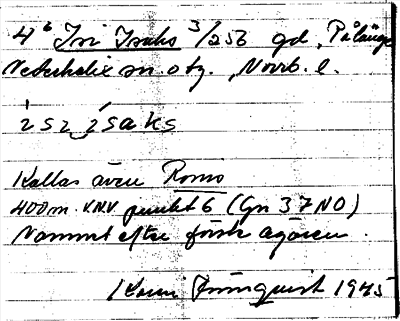 4⁶ Isi Isaks 3/256 gd, Pålänge
Nederkalix sn. o tg., Norrb. l.
ísz ísaks
Kallas även Romo
400 m. V.N.V. punkt 6 (Gn 37 NO)
Namnet efter förste ägaren.
1945